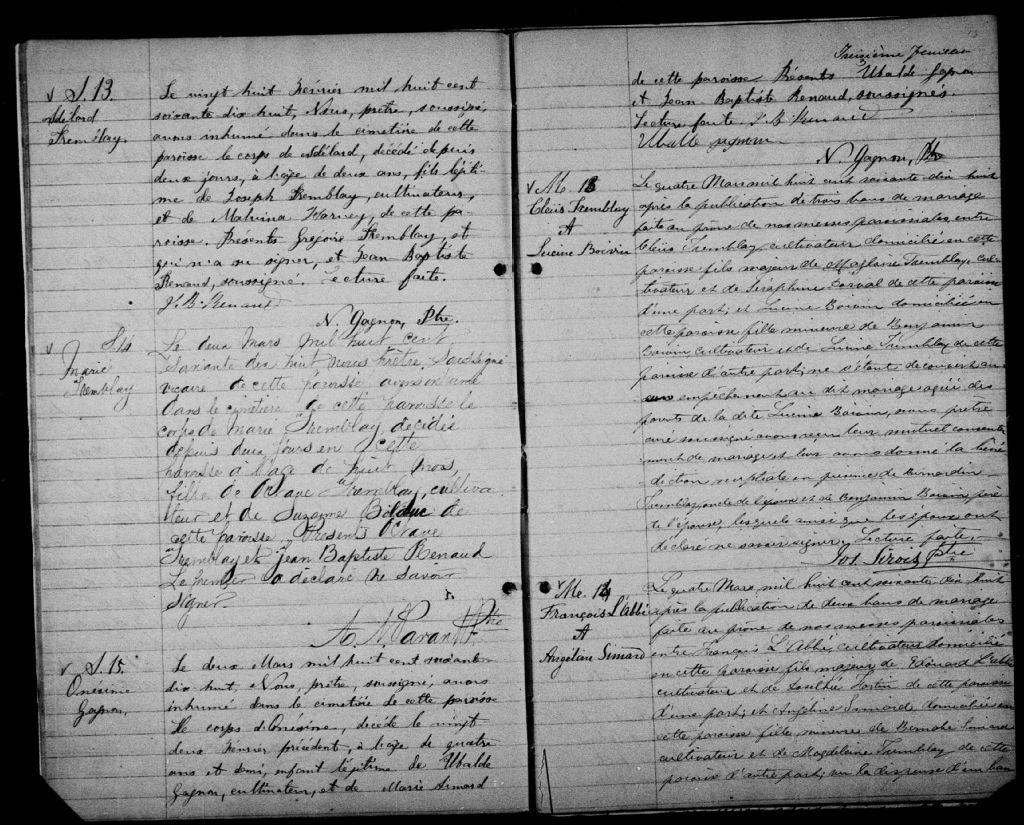 S. 13.
Adélard
Tremblay.
Le vingt huit Février mil huit cent
soixante dix huit, Nous, prêtre, soussigné,
avons inhumé dans le cimetière de cette
paroisse le corps de Adélard, décédé depuis
deux jours, à l'âge de deux ans, fils légiti-
me de Joseph Tremblay, cultivateur,
et de Malvina Harvey, de cette pa-
roisse. Présents Grégoire Tremblay, et
qui n'a su signer, et Jean Baptiste
Renaud, soussigné. Lecture faite.
J. B. Renaud
N. Gagnon, Ptre.
S 14
Marie
Tremblay
Le deux Mars mil huit cent
soixante dix huit nous Prêtre Soussigné
vicaire de cette paroisse avons inhumé
dans le cimetière de cette paroisse le
corps de Marie Tremblay décédée
depuis deux jours en cette
paroisse à l'age de huit mois,
fille de Octave Tremblay, cultiva
teur et de Suzanne Bolduc de
cette paroisse, Présents Octave
Tremblay et Jean Baptiste Renaud
Le premier a déclaré ne savoir
signer.
A. M. Parant Ptre
S. 15.
Onésime
Gagnon,
Le deux Mars mil huit cent soixante
dix huit, Nous, prêtre, soussigné, avons
inhumé dans le cimetière de cette paroisse
le corps d'Onésime, décédé le vingt
deux Février précédent, à l'âge de quatre
ans et demi, enfant légitime de Ubalde
Gagnon, cultivateur, et de Marie Simard
13
Treizième feuillet
de cette paroisse. Présents Ubalde Gagnon
et Jean Baptiste Renaud, soussignés.
Lecture faite J. B. Renaud
N. Gagnon, Ptre
M. 13
Cléüs Tremblay
A
Lucine Boivin
Le quatre Mars mil huit cent soixante dix huit
après la publication de trois bans de mariage
faite au prône de nos messes paroissiales entre
Cléüs Tremblay cultivateur domicilié en cette
paroisse fils majeur de Magloire Tremblay cul-
tivateur et de Séraphine de cette paroisse
d'une part; et Lucine Boivin domiciliée en
cette paroisse fille mineure de Benjamin
Boivin cultivateur et de Lucine Tremblay de cette
paroisse d'autre part; ne s'étant découvert au-
cun empêchement au dit mariage agréé des
parents de la dite Lucine Boivin, nous prêtre
curé soussigné avons reçu leur mutuel consente
ment de mariage et leur avons donné la béné
diction nuptiale en présence de
Tremblay oncle de l'époux et de Benjamin Boivin, père
de l'épouse, lesquels ainsi que les époux ont
déclaré ne savoir signer. Lecture faite.
Jos Sirois Ptre
M. 14
François L'Abbé
A
Angéline Simard
Le quatre Mars mil huit cent soixante dix huit
après la publication de deux bans de mariage
faite au prône de nos messes paroissiales
entre François L'Abbé, cultivateur domicilié
en cette paroisse fils majeur de Edouard L'abbé
cultivateur et de Fortin de cette paroisse
d'une part; et Angéline Simard domiciliée en
cette paroisse fille mineure de Simard
cultivateur et de Magdeleine Tremblay de cette
paroisse d'autre part; vu la dispense d'un ban